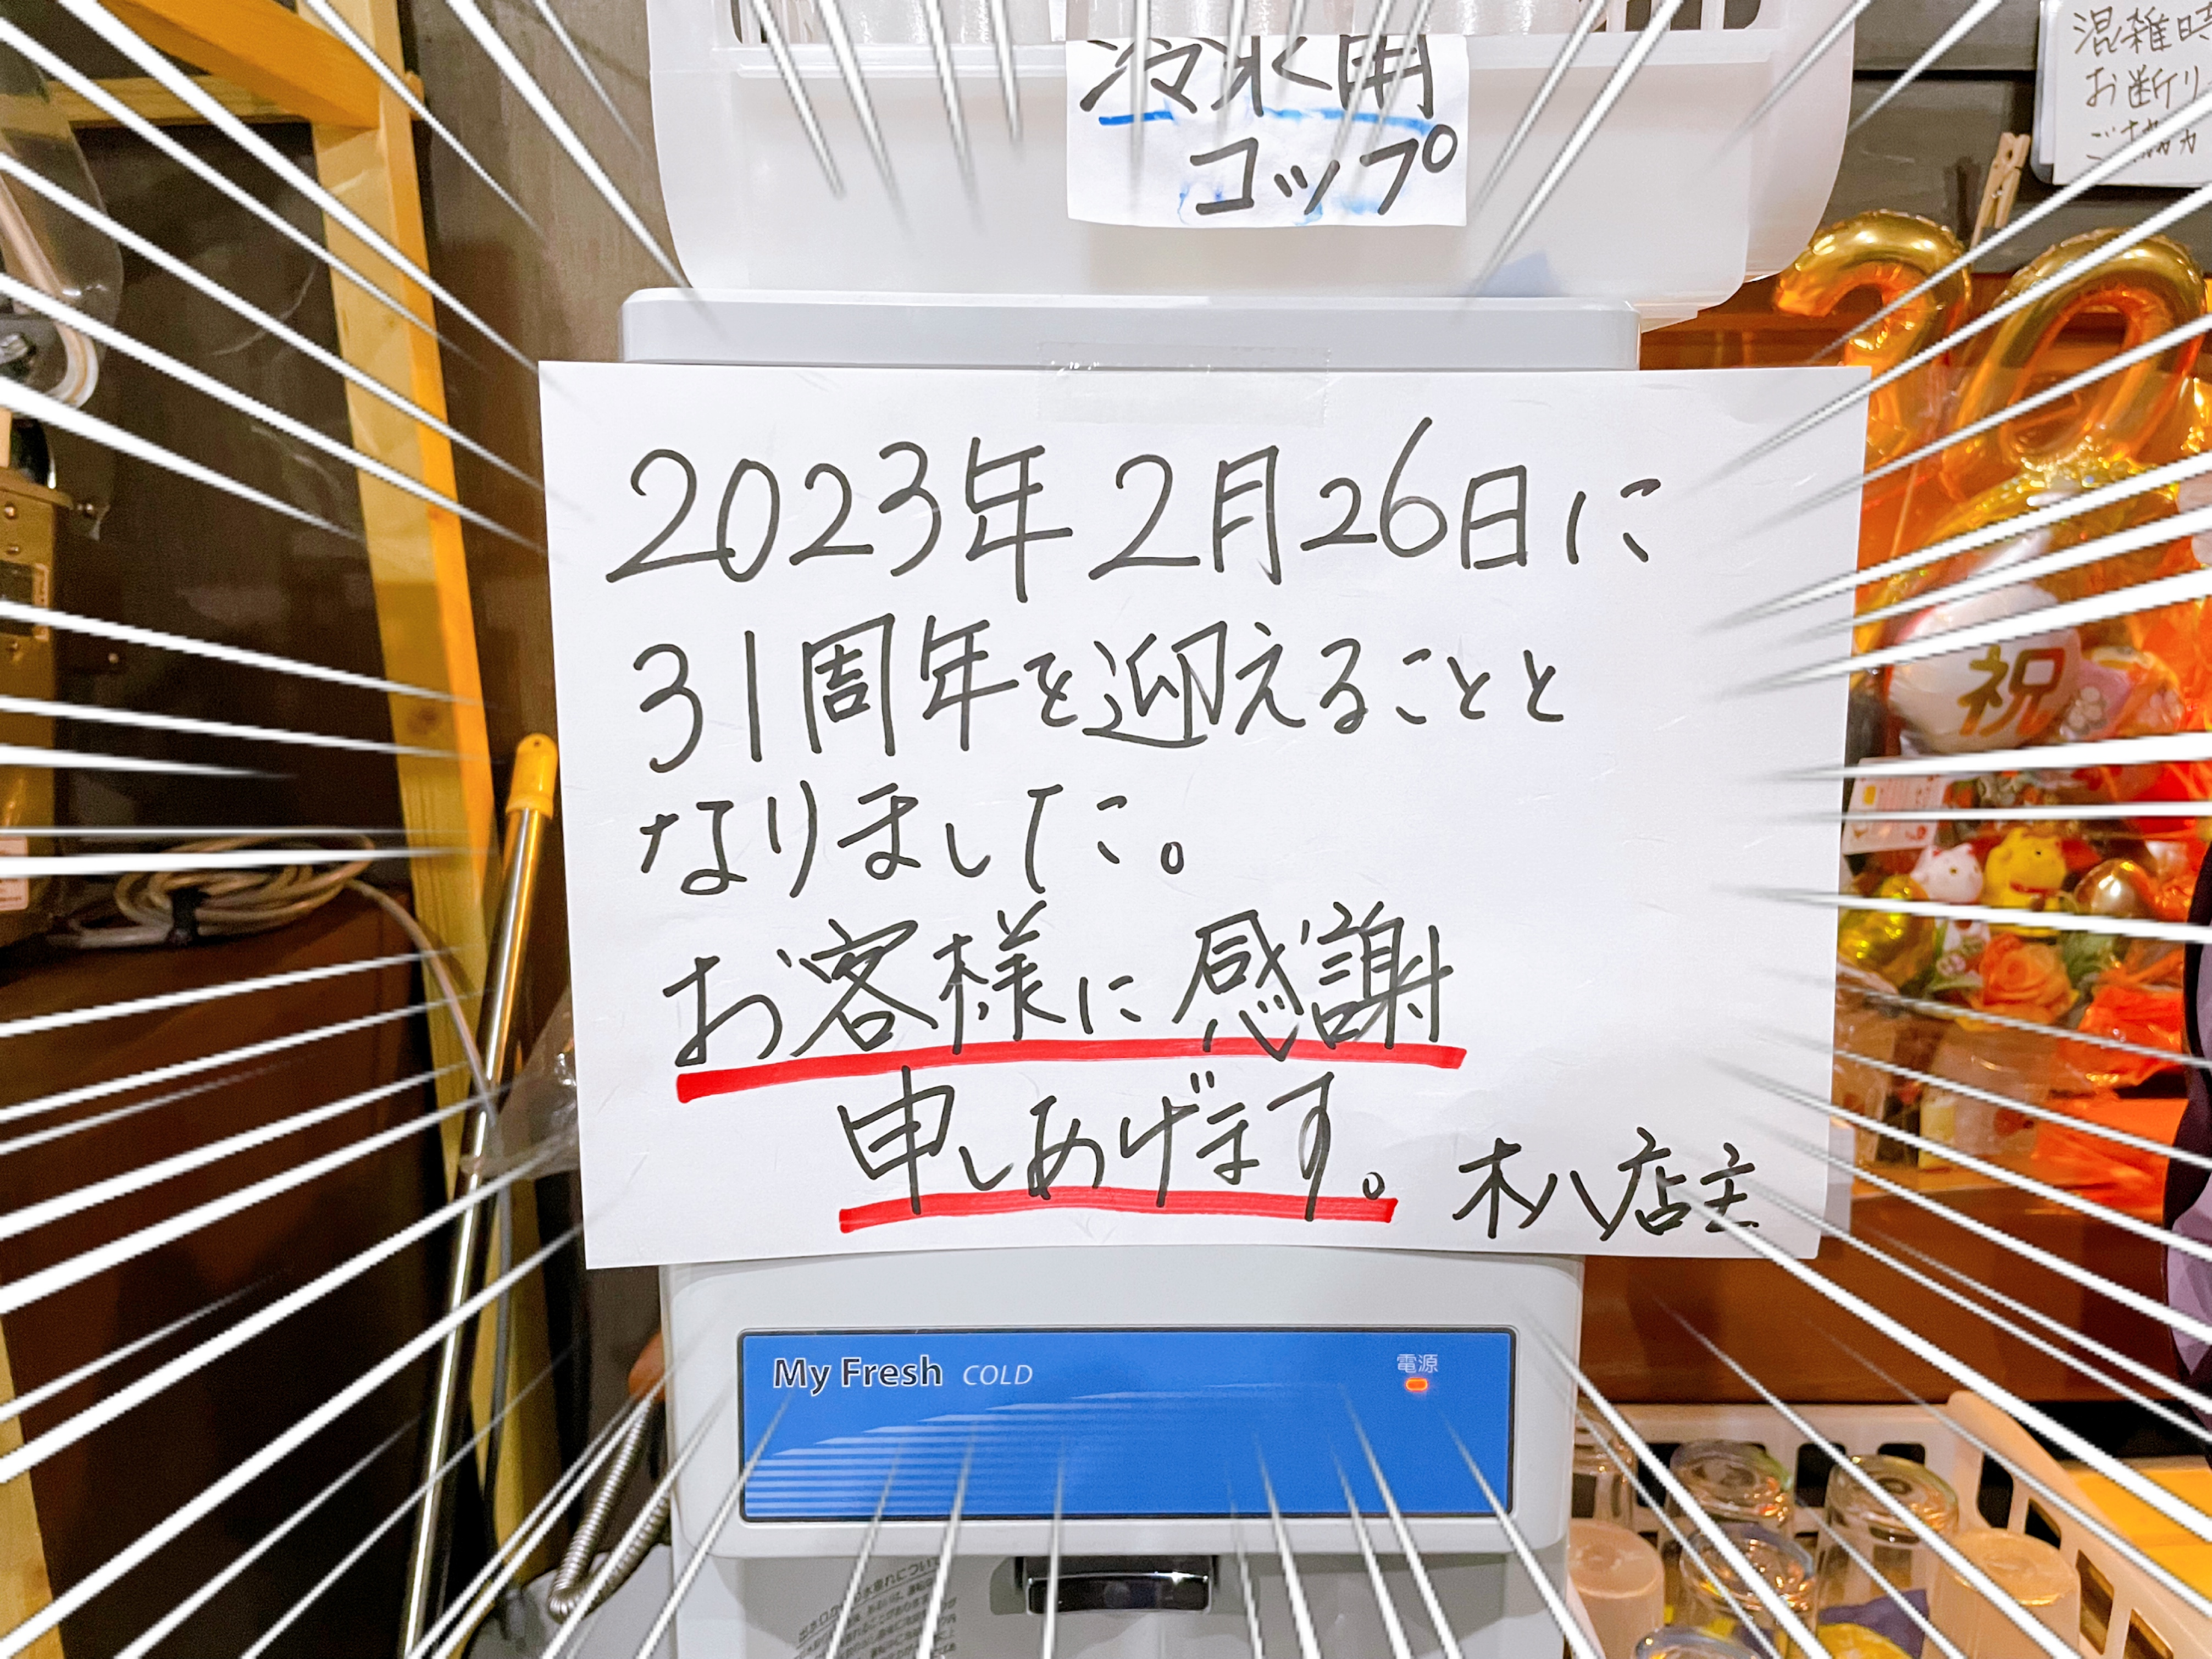 冷水用
コップ
混雑時
お断り
ご協力
2023年2月26日に
31周年を迎えることと
なりました。
お客様に感謝
申しあげます。
木八店主
祝
My Fresh COLD
電源